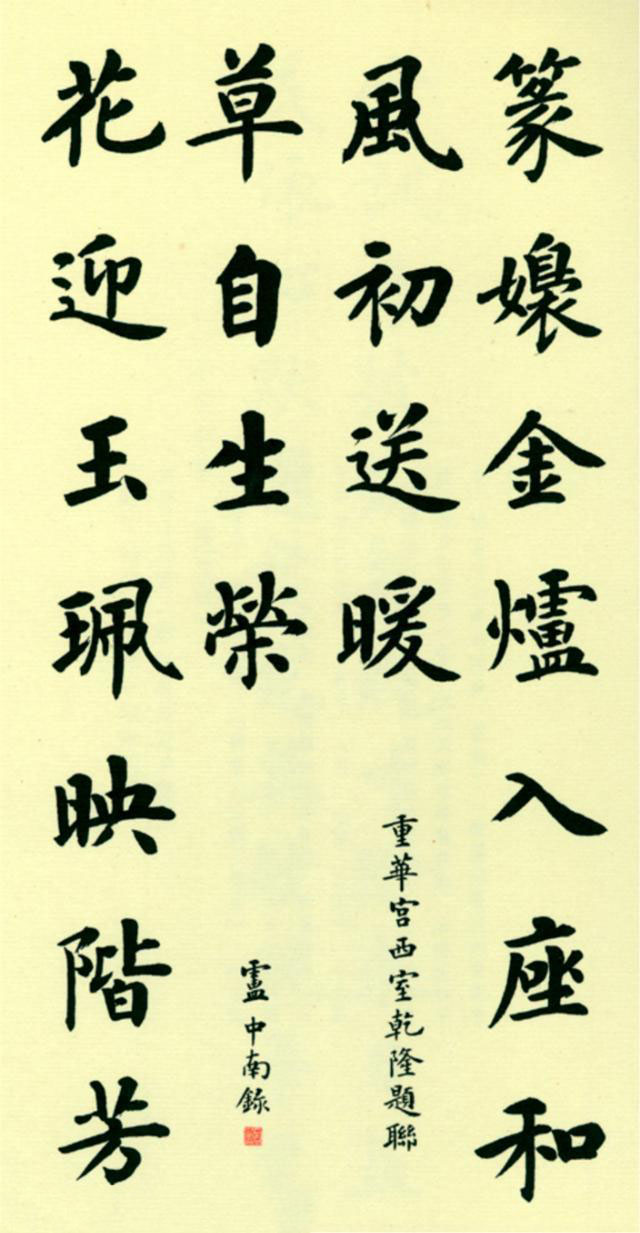 篆嬝金爐入座和
風初送暖
重華宮西室乾隆題聯
花迎玉珮映階芳
草自生榮
盧中南錄